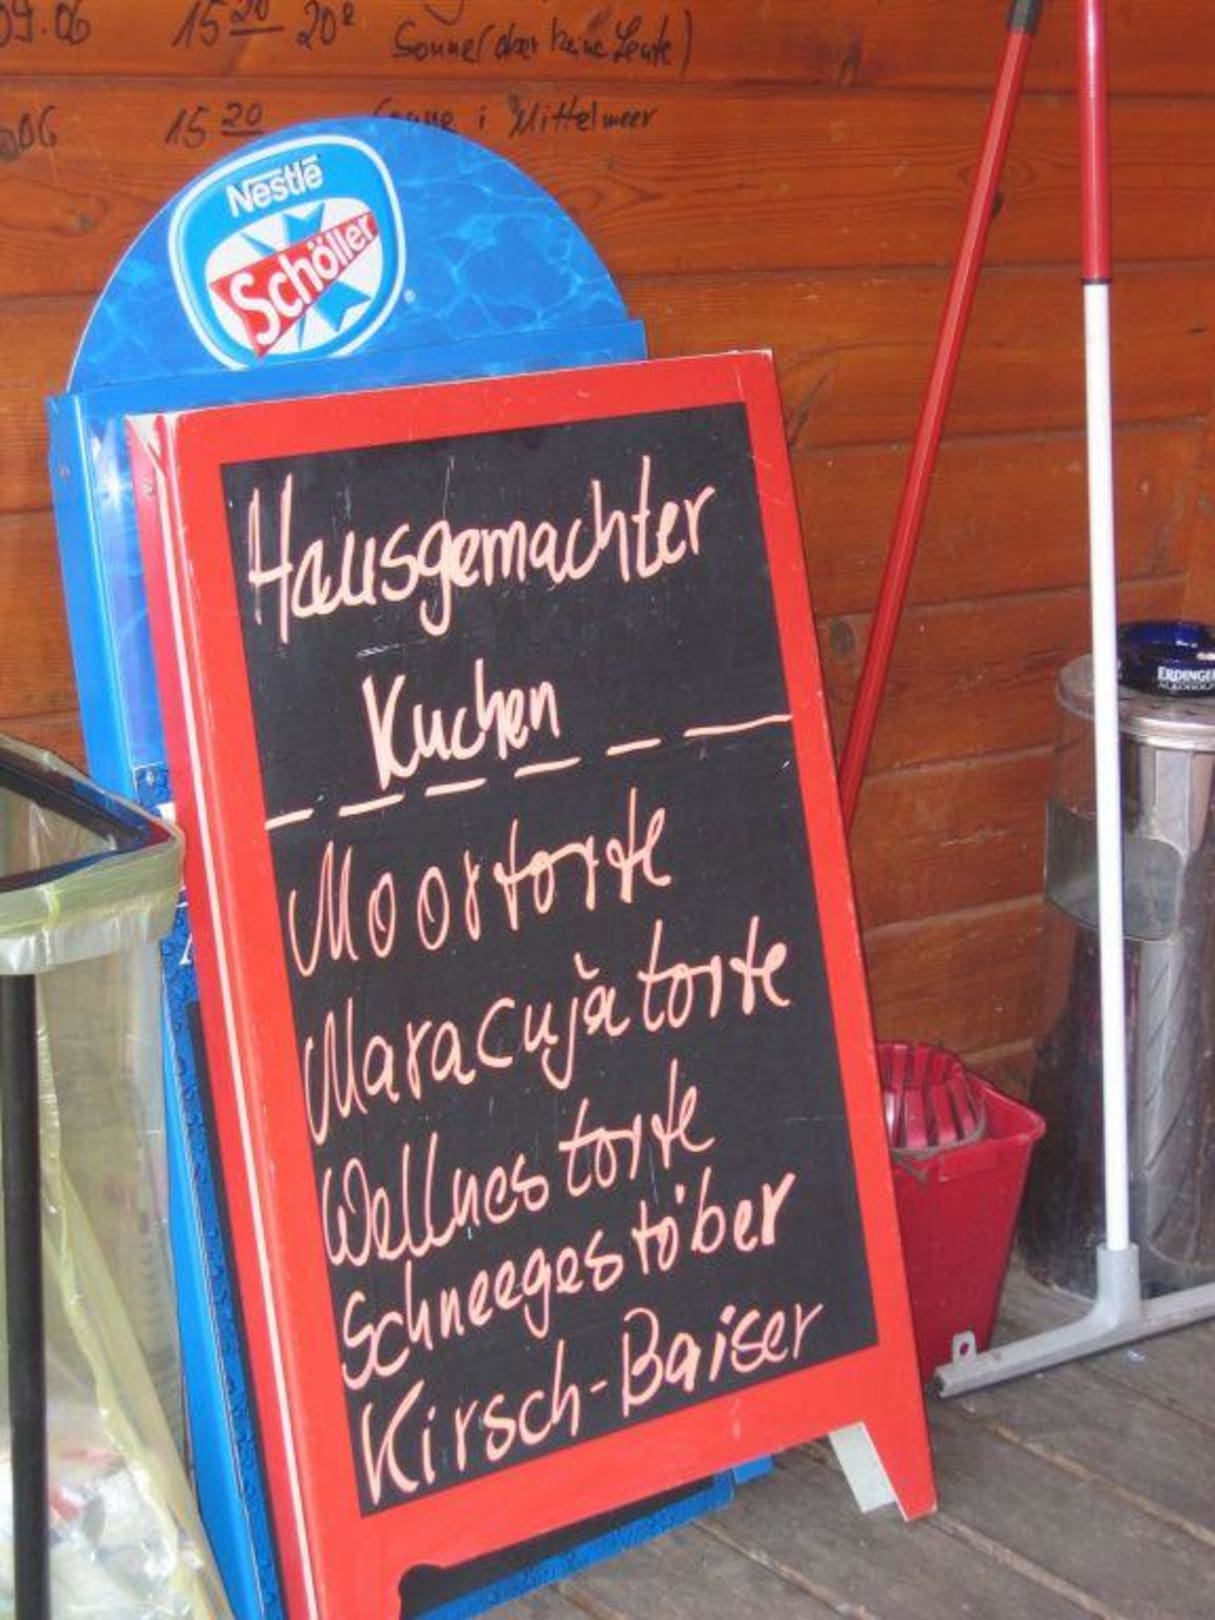 09.06 15 20 20²
Sonne (aber keine Leute)
06 15 20 i Mittelmeer
Nestlé
Schöller
Hausgemachter
Kuchen
Moortorte
Maracujatorte
Wellnestorte
Schneegestöber
Kirsch-Baiser
ERDINGER